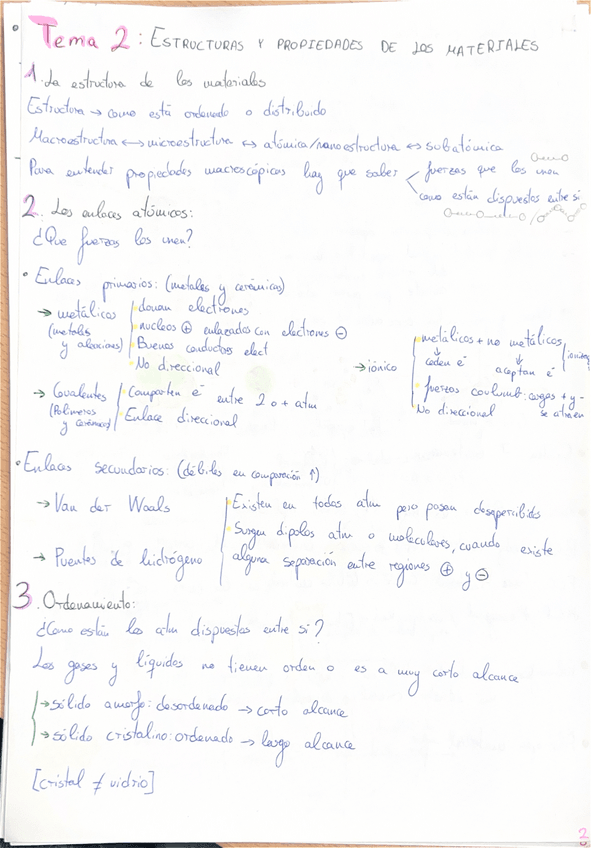 Tema 2: ESTRUCTURAS Y PROPIEDADES DE LOS MATERIALES
1. La estructura de los materiales
Estructura → como está ordenado o distribuido
Macroestructura ↔ microestructura ↔ atómica/nanoestructura ↔ subatómica
Para entender propiedades macroscópicas hay que saber < fuerzas que los unen
como están dispuestos entre si
2. Los enlaces atómicos:
¿Que fuerzas los unen?
• Enlaces primarios: (metales y cerámicas)
→ metálicos
(metales y aleaciones)
donan electrones
nucleos ⊕ enlazados con electrones ⊖
Buenos conductores elect
No direccional
→ Covalentes
(Polímeros y cerámicas)
Comparten e⁻ entre 2 o + atm
Enlace direccional
→ iónico
metálicos + no metálicos
ceden e⁻
aceptan e⁻
fuerzas coulomb: cargas + y -
se atraen
No direccional
• Enlaces secundarios: (débiles en comparación ↑)
→ Van der Waals
→ Puentes de hidrógeno
Existen en todos atm pero pasan desapercibidos
Surgen dipolos atm o moleculares, cuando existe
alguna separación entre regiones ⊕ y ⊖
3. Ordenamiento:
¿Como están los atm dispuestos entre si?
Los gases y líquidos no tienen orden o es a muy corto alcance
→ sólido amorfo: desordenado → corto alcance
→ sólido cristalino: ordenado → largo alcance
[cristal ≠ vidrio]
2